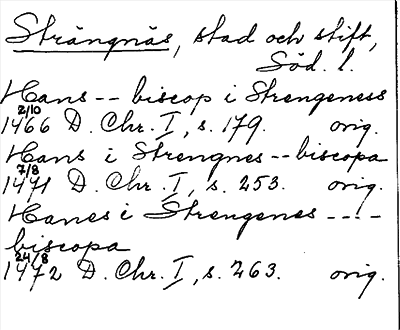 Strängnäs, stad och stift,
Söd. l.
Hans -- biscop i Strengeness
2/10
1466 D. Chr. I, s. 179. orig.
Hans i Strengnes -- biscopa
7/8
1471 D. Chr. I, s. 253. orig.
Hanes i Strengenes ----
biscopa
24/8
1472 D. Chr. I, s. 263. orig.